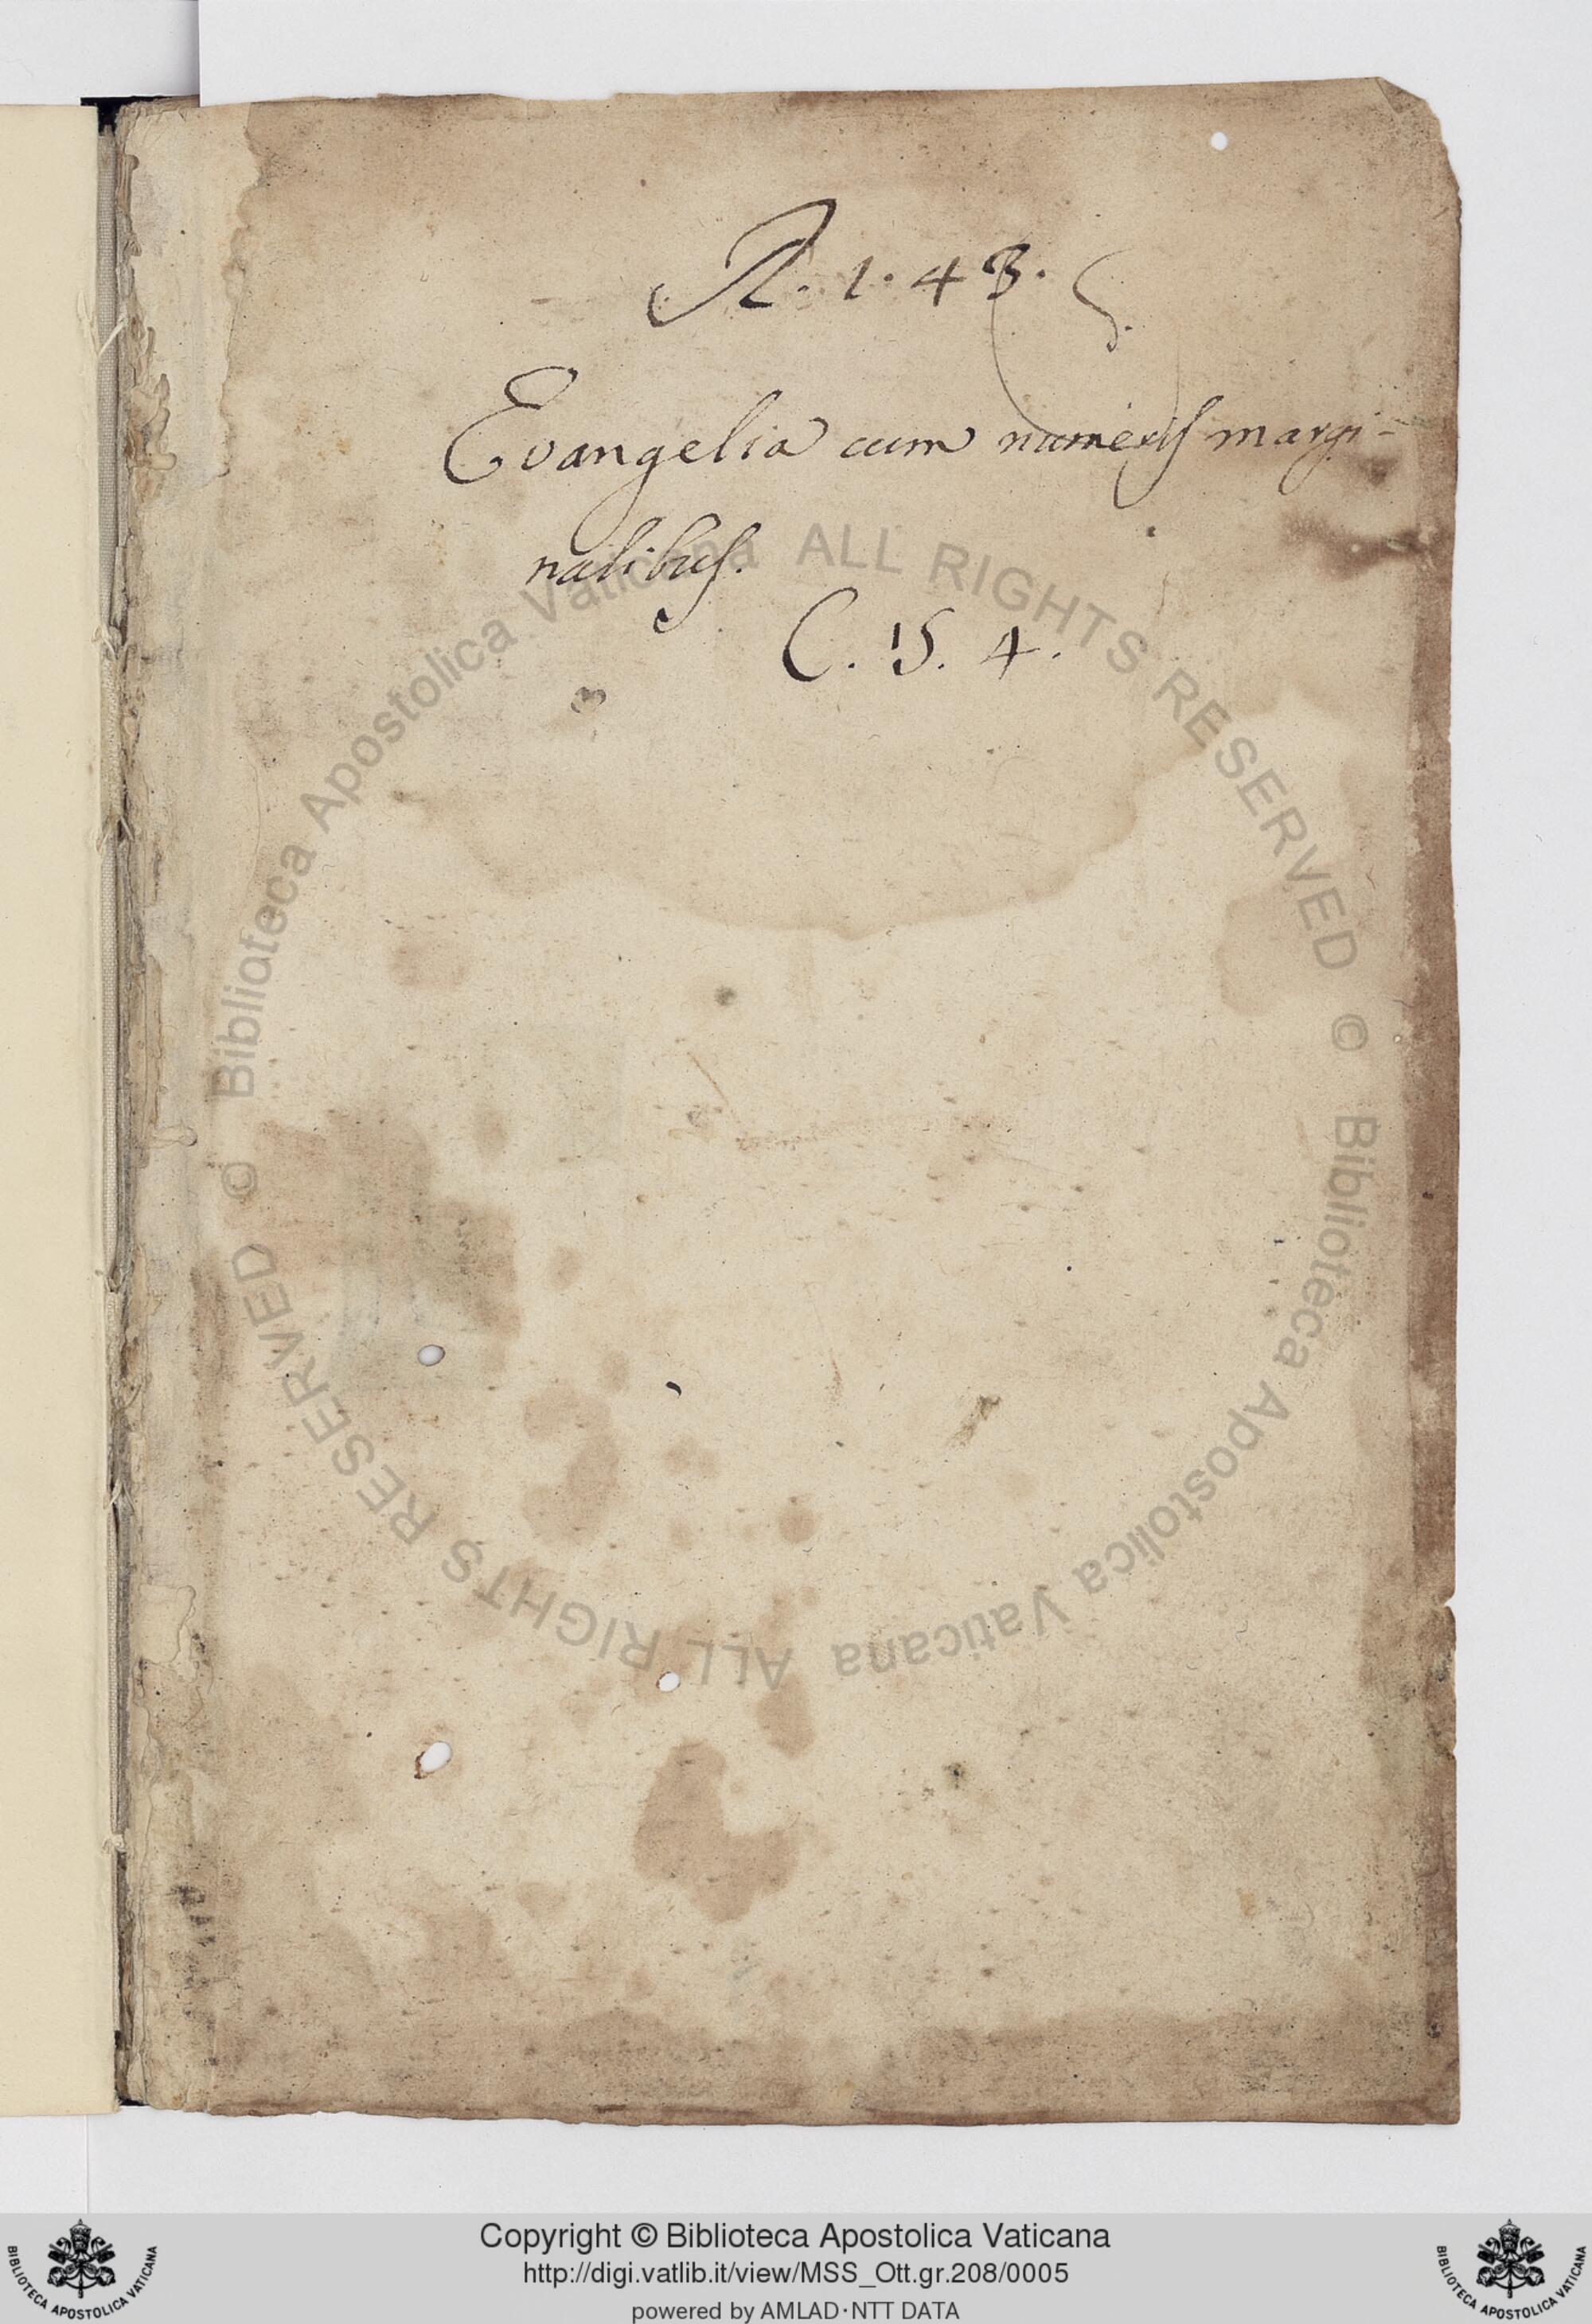 R. 1. 43.
Evangelia cum numeris margi-
nalibus.
C. 15. 4.
© Biblioteca Apostolica Vaticana ALL RIGHTS RESERVED
© Biblioteca Apostolica Vaticana ALL RIGHTS RESERVED
BIBLIOTECA APOSTOLICA VATICANA
Copyright © Biblioteca Apostolica Vaticana
http://digi.vatlib.it/view/MSS_Ott.gr.208/0005
powered by AMLAD·NTT DATA
BIBLIOTECA APOSTOLICA VATICANA